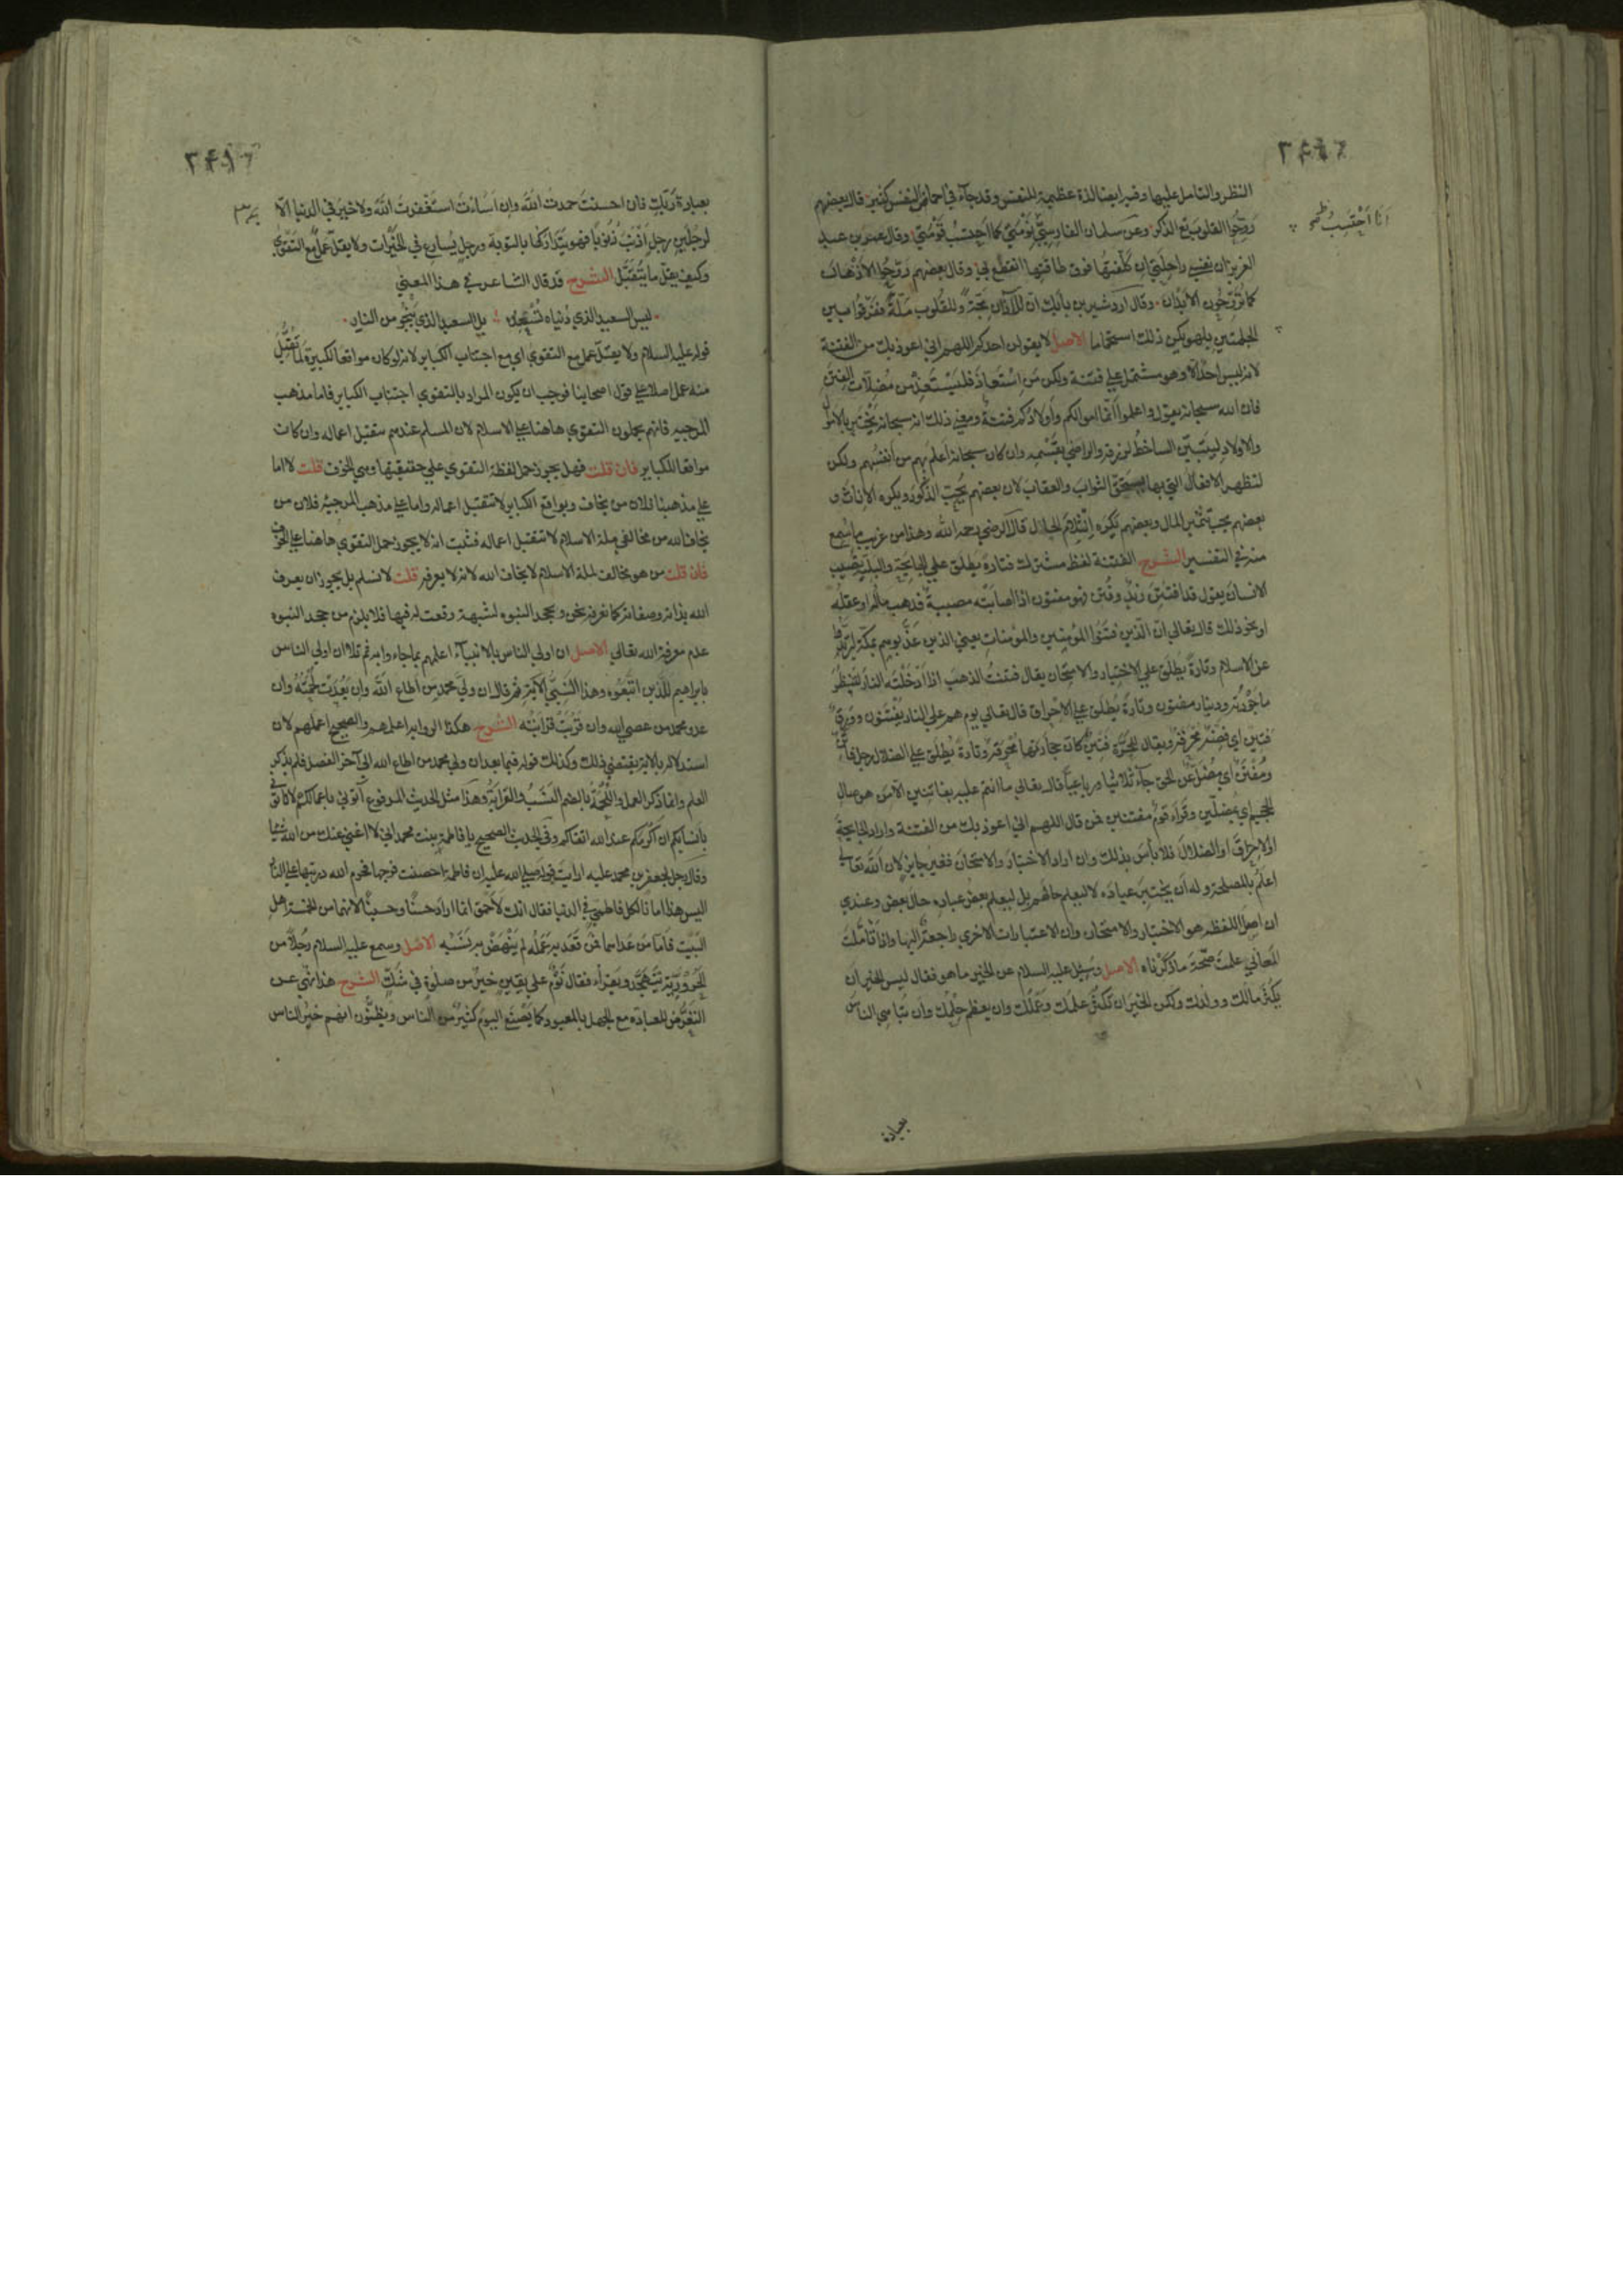 النظر والتامل عليها وفيه ايضا لذة عظيمة للنفس وقد جاء في احماض النفس كثير قال بعضهم
رَوِّحُوا القلوب تَعِ الذكر وعن سلمان الفارسيّ نَوْمَتي كما احتسب قَوْمَتي وقال عمر بن عبد
انا احتسب
العزيز ان نفسي راحلتي ان كلّفتها فوق طاقتها انقطع بي وقال بعضهم روّحوا الاذهان
كما تُرَوِّحُون الابدان وقال اردشير بن بابك ان للآذان مجّة وللقلوب مَلَّة ففرّقوا بين
الحكمتين بلهو يكن ذلك استجماما الاصل لا يقولن احدكم اللهم اني اعوذ بك من الفتنة
لانه ليس احد الا وهو مشتمل على فتنة ولكن مَن اسْتَعاذ فليَسْتَعِذ من مُضِلّات الفِتَن
فان الله سبحانه يقول واعلموا انّما اموالكم واولادكم فتنة ومعنى ذلك انه سبحانه يَخْتَبِر بالاموال
والاولاد لِيَتَبيّن الساخط لرزقه والراضي بقَسْمِه وان كان سبحانه اعلم بهم من انفسهم ولكن
لتظهر الافعال التي بها يستحق الثواب والعقاب لان بعضهم يُحِبّ الذكور ويكره الاناث و
بعضهم يحب تثمير المال وبعضهم يكره انثلام الحال قال الرضي رحمه الله وهذا من غريب ما سُمِع
منه في التفسير الشرح الفتنة لفظ مشترك فتارة يطلق على الجايحة والبليّة تصيب
الانسان يقول قد افتتن زيد وفُتِن فهو مفتون اذا اصابته مصيبة فذهب ماله او عقله
او نحو ذلك قال تعالى ان الذين فتنوا المؤمنين والمؤمنات يعني الذين عذّبوهم بمكة ليرتدّوا
عن الاسلام وتارة يُطلق على الاختبار والامتحان يقال فتنت الذهب اذا ادخلته النار لتنظر
ما جَوْدَتُه ودينار مفتون وتارة يُطلق على الاحراق قال تعالى يوم هم على النار يُفْتَنُون ووَرِق
فتين اي فضّة محرقة ويقال للحَرَّة فَتِين كانّ حجارتها محرقة وتارة يُطلق على الضلال رجل فاتن
ومُفْتِن اي مُضِلّ عن الحق جاء ثلاثيا ورباعيا قال تعالى ما انتم عليه بفاتنين الا من هو صال
الجحيم اي بمُضلّين وقرأ قوم مفتنين فمن قال اللهم اني اعوذ بك من الفتنة واراد الجايحة
او الاحراق او الضلال فلا بأس بذلك وان اراد الاختبار والامتحان فغير جايز لان الله تعالى
اعلم بالمصلحة وله ان يختبر عباده لا ليعلم حالهم بل ليعلم بعض عباده حال بعض وعندي
ان اصل اللفظة هو الاختبار والامتحان وان الاعتبارات الاخرى راجعة اليها واذا تأمّلت
المعاني علمت صحّة ما ذكرناه الاصل وسُئِل عليه السلام عن الخير ما هو فقال ليس الخير ان
يكثر مالك وولدك ولكن الخير ان يكثر علمك وعملك وان يعظم حلمك وان تُباهي الناس
بعبادة
٢٤٩
بعبادة رَبِّك فان احسنت حمدت الله وان اسأت استغفرت الله ولا خير في الدنيا الا
لرجلين رجل اَذْنَبَ ذنوبا فهو يتداركها بالتوبة ورجل يُسارع في الخيرات ولا يقلّ عمل مع التقوى
وكيف يقلّ ما يُتَقَبَّل الشرح قد قال الشاعر في هذا المعنى
ليس السعيد الذي دُنياه تُسْعِده بل السعيد الذي يَنْجُو من النار
قوله عليه السلام ولا يقلّ عمل مع التقوى اي مع اجتناب الكباير لانه لو كان مواقعا لكبيرة لما تُقُبّل
منه عمل اصلا على قول اصحابنا فوجب ان يكون المراد بالتقوى اجتناب الكباير فاما مذهب
المرجيه فانهم يحملون التقوى هاهنا على الاسلام لان المسلم عندهم تتقبل اعماله وان كانت
مواقعا للكباير فان قلت فهل يجوز حمل لفظة التقوى على حقيقتها وهي الخوف قلت لا اما
على مذهبنا فلان من يخاف ويواقع الكباير لا تتقبل اعماله واما على مذهب المرجئة فلان من
يخاف الله من مخالفي ملة الاسلام لا تتقبل اعماله فثبت انه لا يجوز حمل التقوى هاهنا على الخوف
فان قلت من هو مخالف لملة الاسلام لا يخاف الله لانه لا يعرفه قلت لا نسلم بل يجوز ان يعرف
الله بذاته وصفاته كما نعرفه نحن ويجحد النبوه لشبهة وقعت له فيها فلا يلزم من جحد النبوه
عدم معرفة الله تعالى الاصل ان اولى الناس بالانبياء اعلمهم بما جاءوا به ثم تلا ان اولى الناس
بابراهيم للذين اتّبعوه وهذا النبيّ الآية ثم قال ان وليّ محمد من اطاع الله وان بَعُدَت لُحْمَتُه وان
عدو محمد من عصى الله وان قَرُبَت قَرابَتُه الشرح هكذا الرواية اعلمهم والصحيح اعملهم لان
استدلاله بالاية يقتضي ذلك وكذلك قوله فيما بعد ان ولي محمد من اطاع الله الى آخر الفصل فلم يذكر
العلم وانما ذكر العمل واللُّحْمَة بالضم النَّسَب والقرابة وهذا مثل الحديث المرفوع ائتوني باعمالكم لا تأتوني
بانسابكم ان اكرمكم عند الله اتقاكم وفي الحديث الصحيح يا فاطمة بنت محمد اني لا اغني عنك من الله شيئا
وقال رجل لجعفر بن محمد عليه ارايت قوله صلى الله عليه ان فاطمة احصنت فرجها فحرم الله ذريتها على النار
اليس هذا امانا لكل فاطمي في الدنيا فقال انك لأحمق انما اراد حسنا وحسينا لانهما من لخمسة اهل
البيت فاما من عداهما فمن قَعَدَ به عَمَلُه لم يَنْهَض به نَسَبُه الاصل وسمع عليه السلام رجلا من
الحَرُوريّة يَتَهَجَّد ويقرأ فقال نَوْم على يقين خير من صلوة في شَكّ الشرح هذا نهي عن
التعرّض للعبادة مع الجهل بالمعبود كما يصنع اليوم كثير من الناس ويظنّون انهم خير الناس